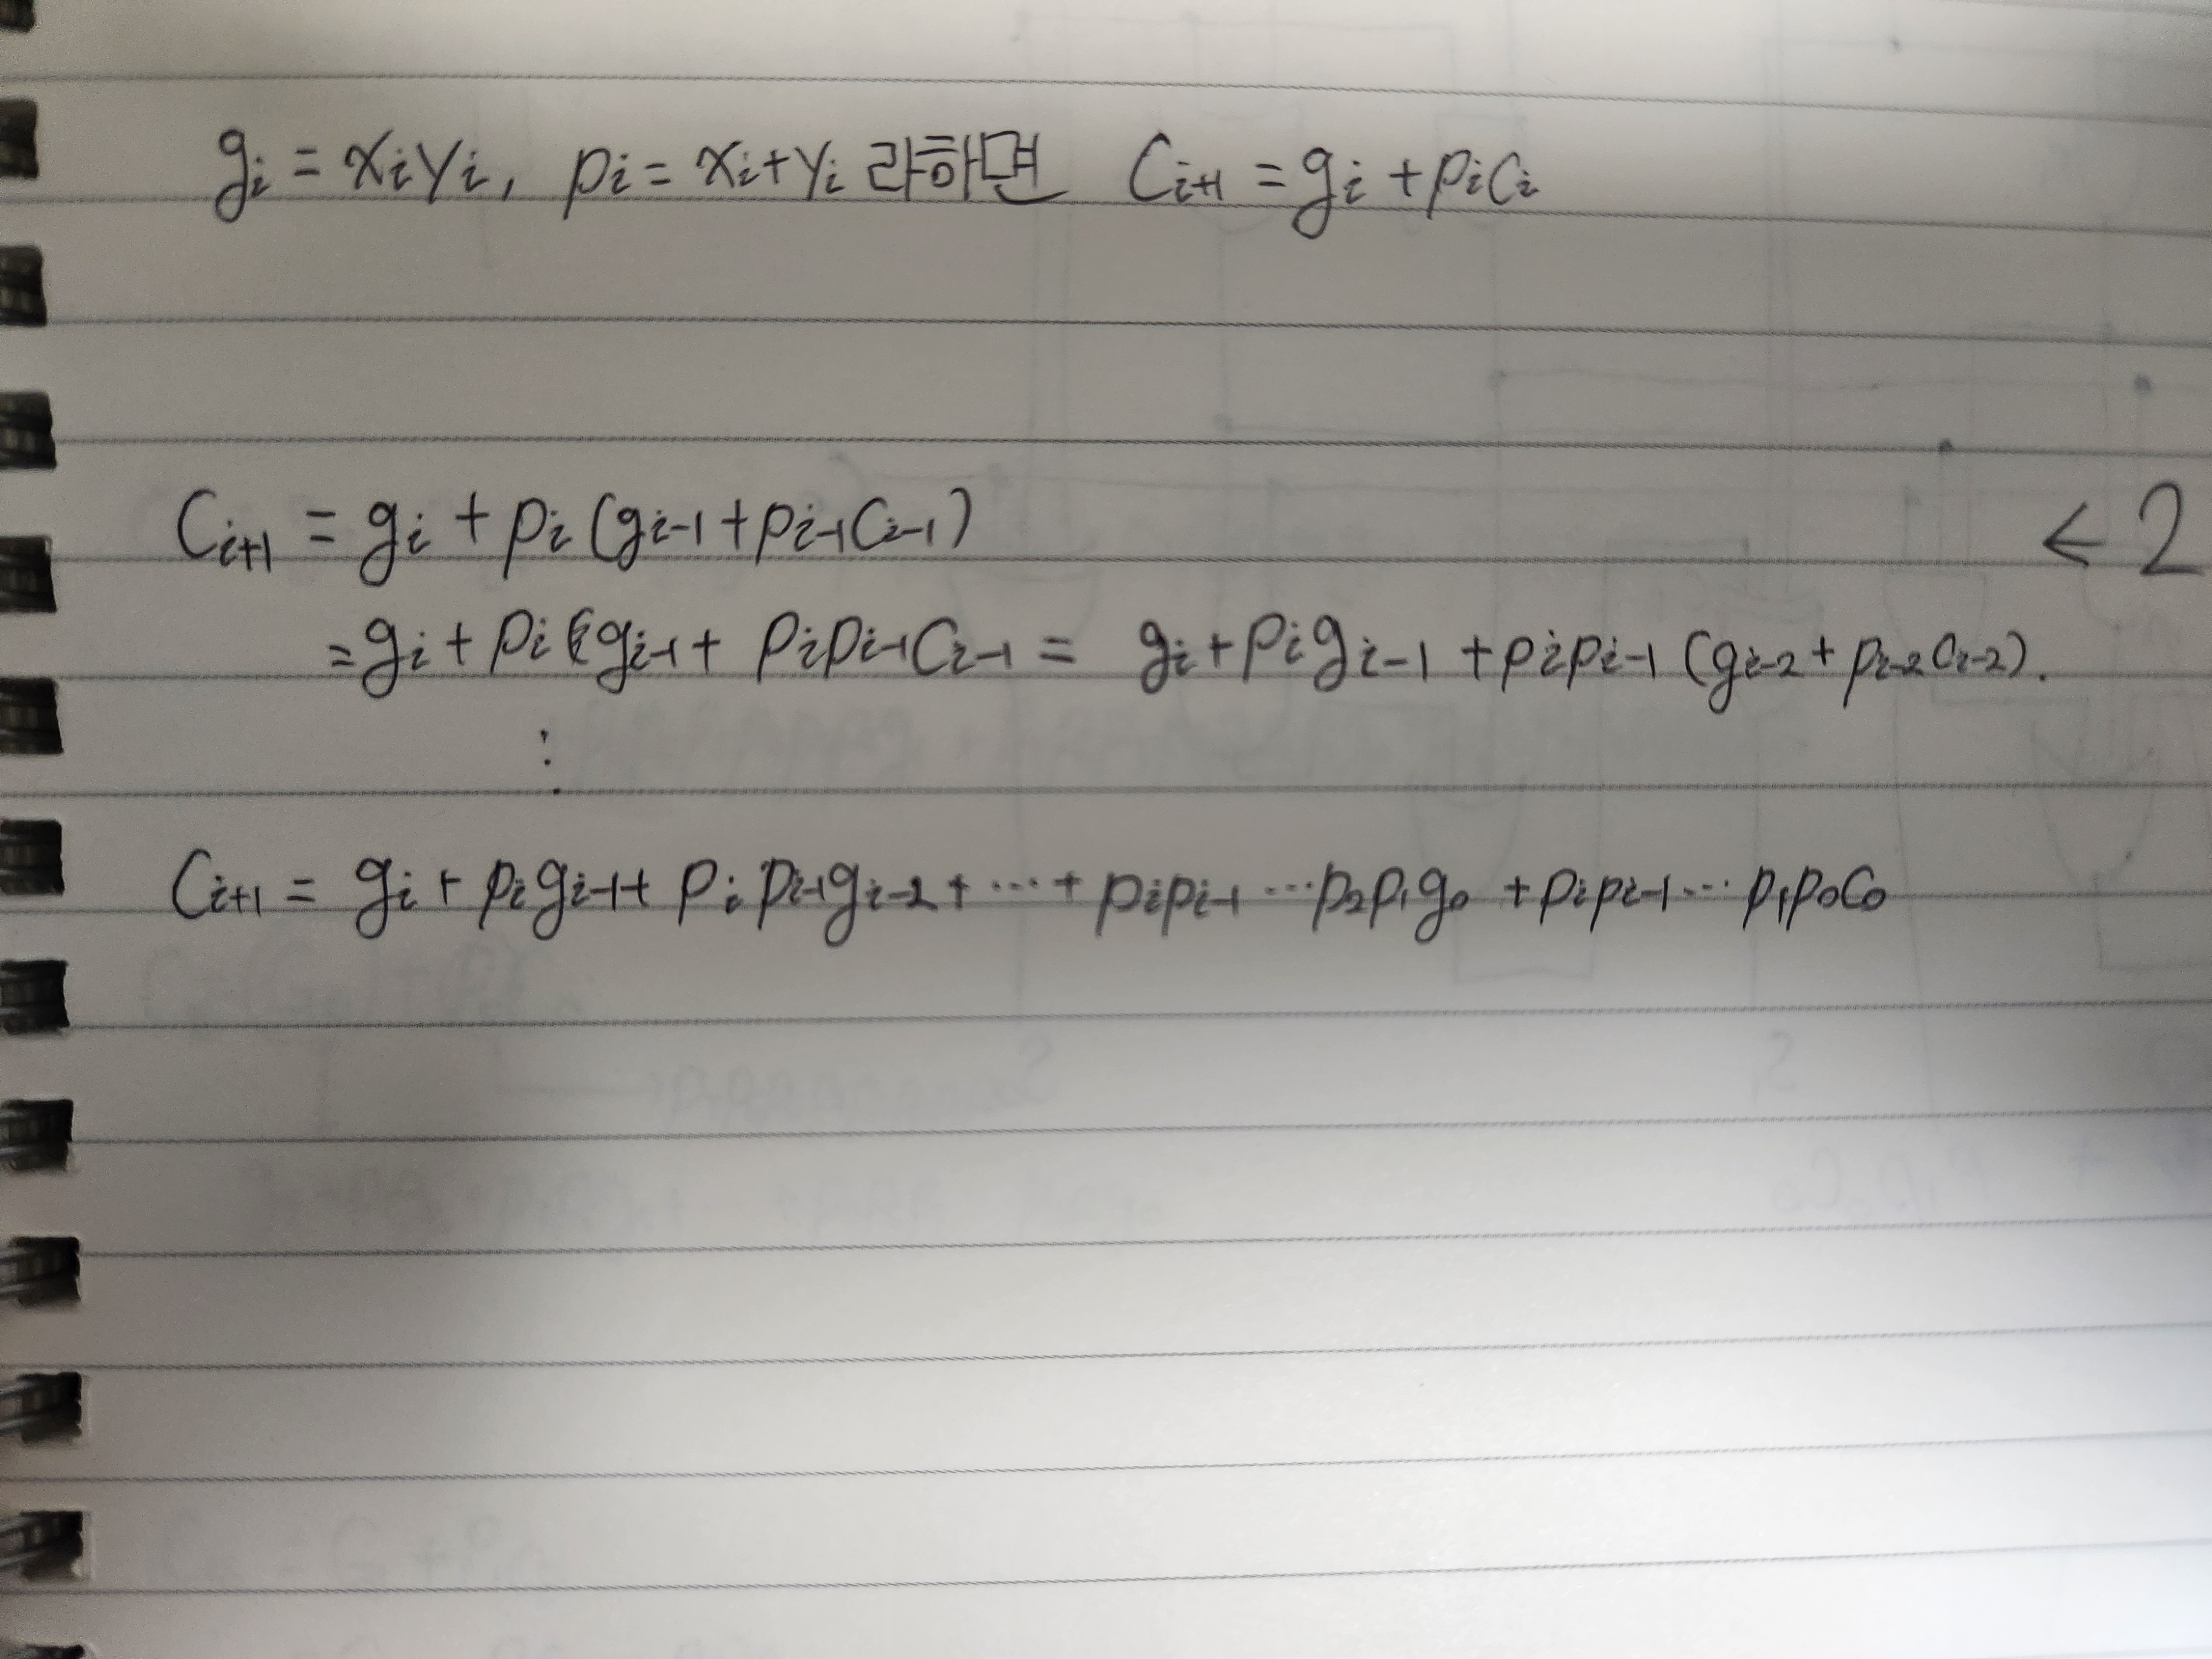 gᵢ = xᵢyᵢ, pᵢ = xᵢ+yᵢ 라하면 Cᵢ₊₁ = gᵢ + pᵢcᵢ
Cᵢ₊₁ = gᵢ + pᵢ(gᵢ₋₁ + pᵢ₋₁cᵢ₋₁) ← 2
= gᵢ + pᵢgᵢ₋₁ + pᵢpᵢ₋₁Cᵢ₋₁ = gᵢ + pᵢgᵢ₋₁ + pᵢpᵢ₋₁(gᵢ₋₂ + pᵢ₋₂cᵢ₋₂).
⋮
Cᵢ₊₁ = gᵢ + pᵢgᵢ₋₁ + pᵢpᵢ₋₁gᵢ₋₂ + ⋯ + pᵢpᵢ₋₁⋯p₂p₁g₀ + pᵢpᵢ₋₁⋯p₁p₀c₀